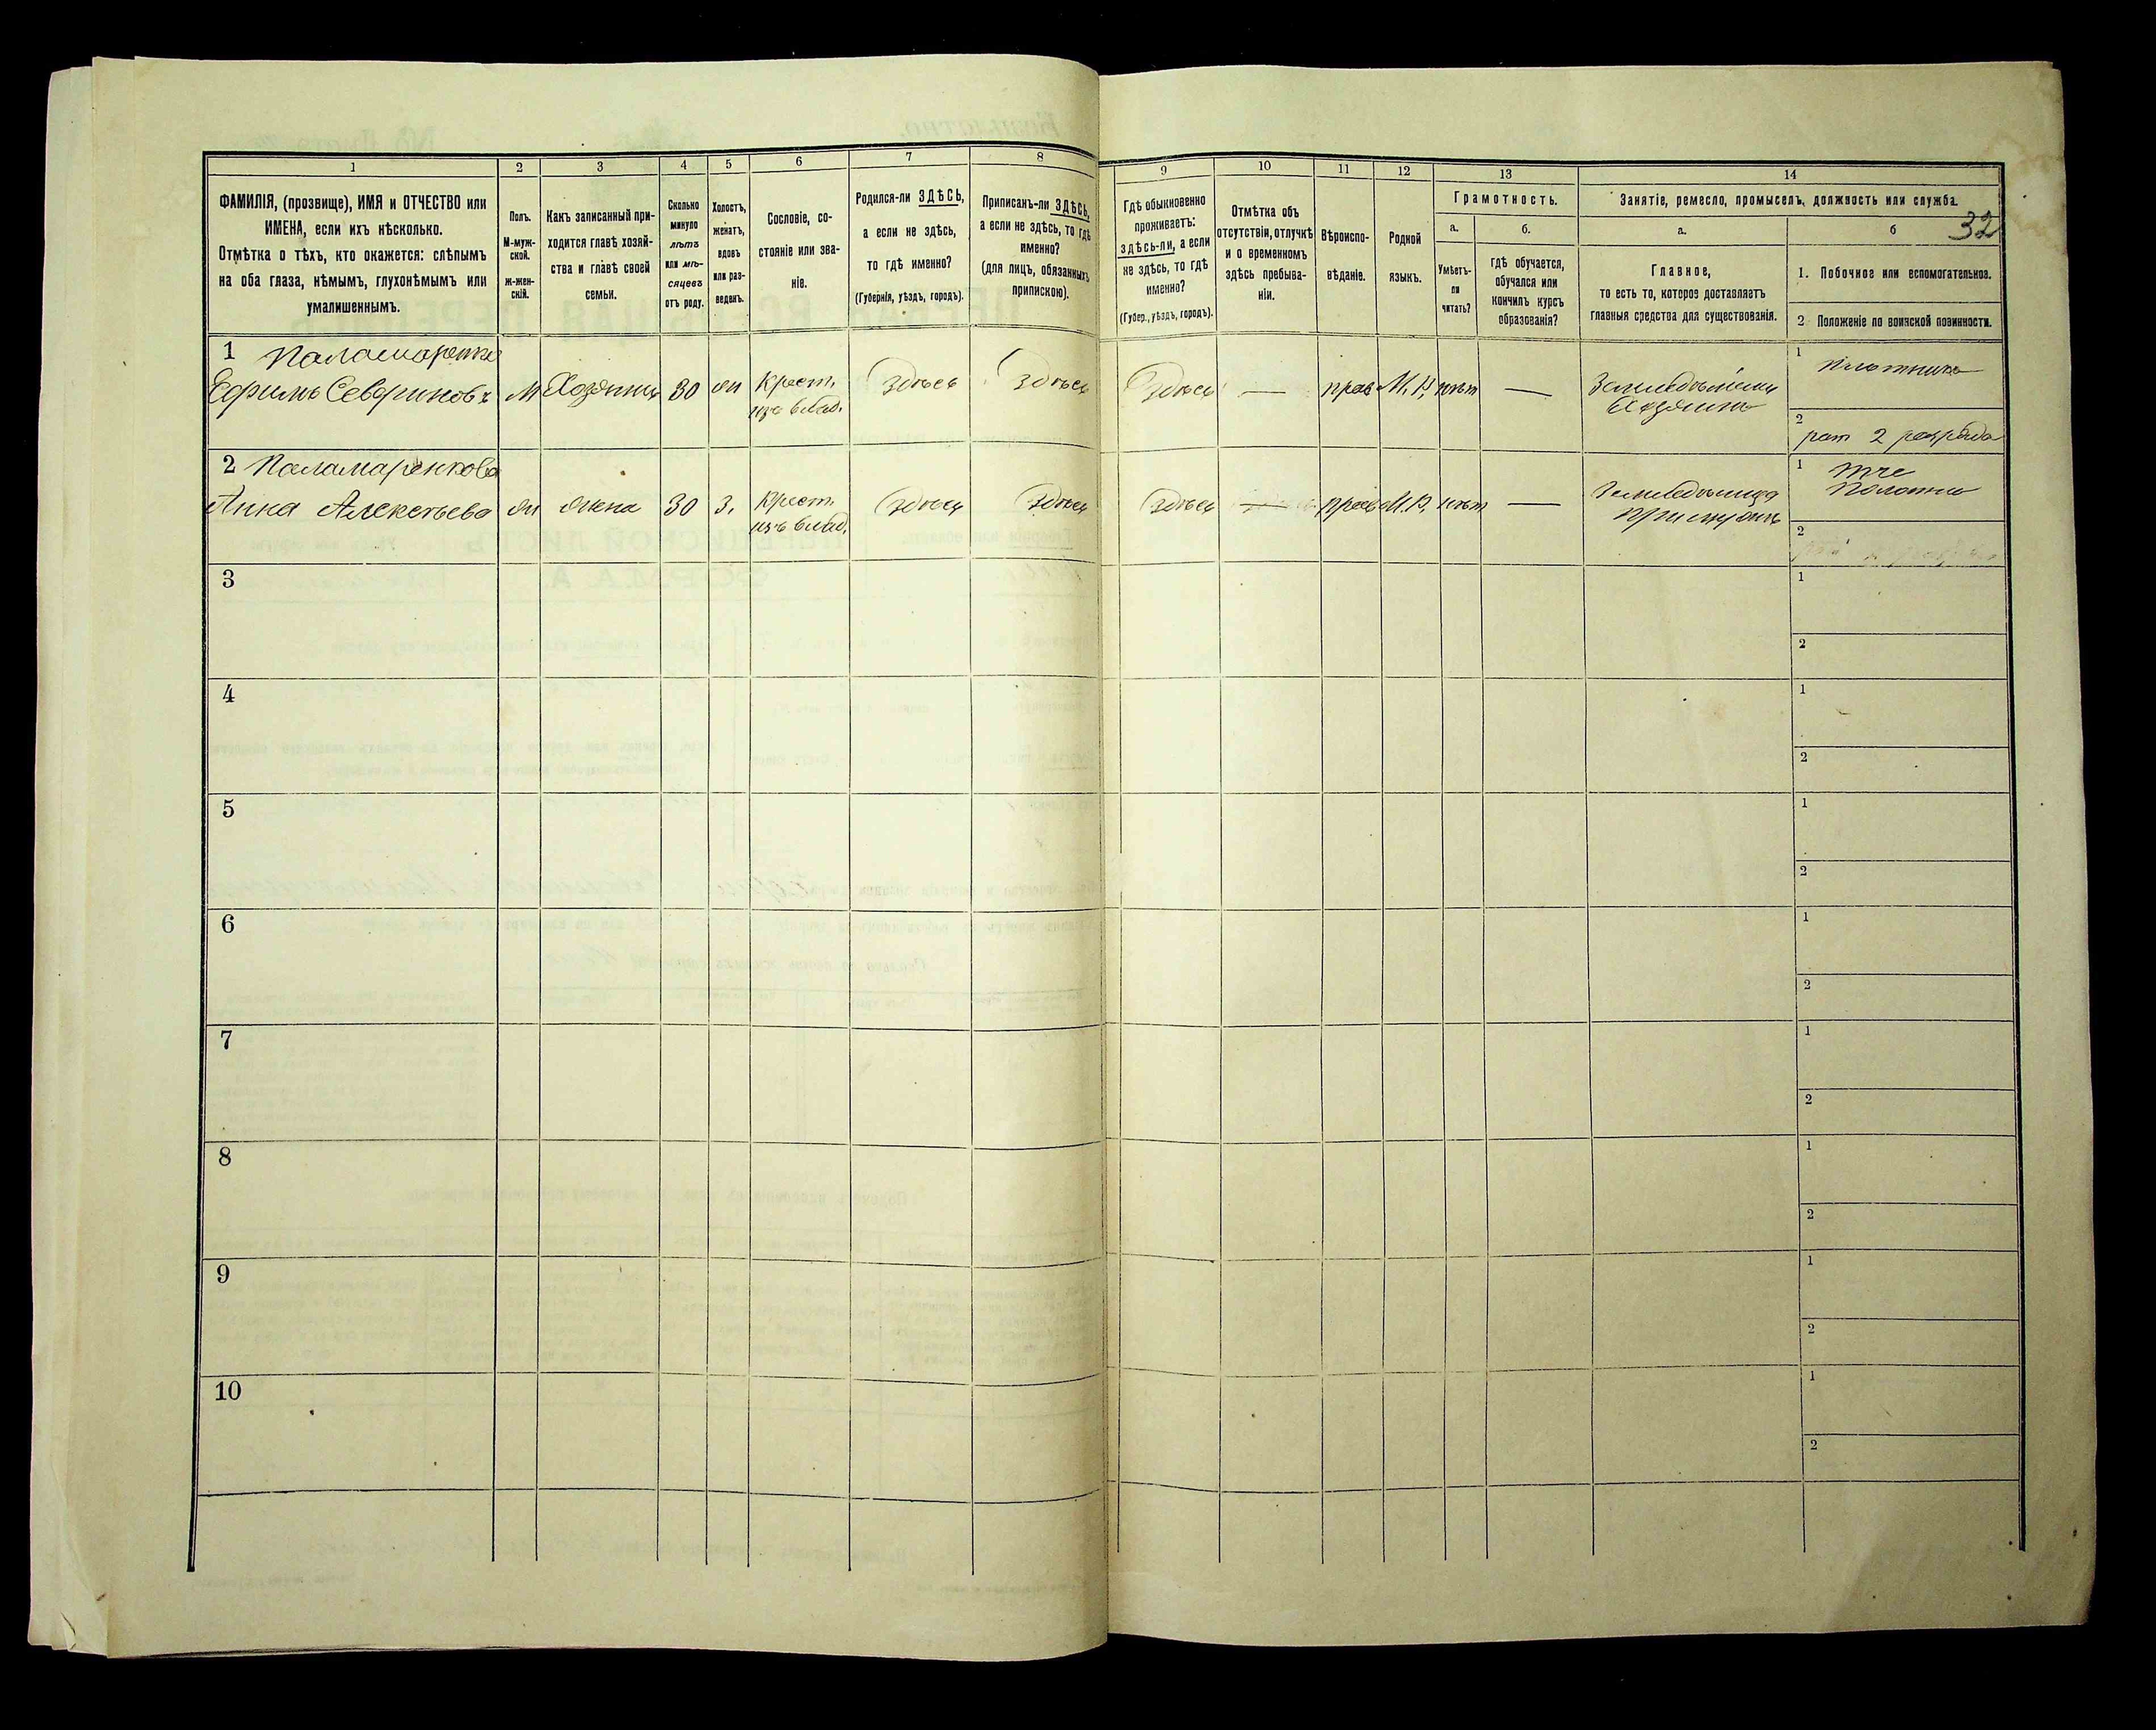 1
2
3
4
5
6
7
8
ФАМИЛІЯ, (прозвище), ИМЯ и ОТЧЕСТВО или
ИМЕНА, если ихъ нѣсколько.
Отмѣтка о тѣхъ, кто окажется: слѣпымъ
на оба глаза, нѣмымъ, глухонѣмымъ или
умалишеннымъ.
Полъ.
М-муж-
ской.
ж-жен-
скій.
Какъ записанный при-
ходится главѣ хозяй-
ства и главѣ своей
семьи.
Сколько
минуло
лѣтъ
или мѣ-
сяцевъ
отъ роду.
Холостъ,
женатъ,
вдовъ
или раз-
веденъ.
Сословіе, со-
стояніе или зва-
ніе.
Родился-ли ЗДѢСЬ,
а если не здѣсь,
то гдѣ именно?
(Губернія, уѣздъ, городъ).
Приписанъ-ли ЗДѢСЬ,
а если не здѣсь, то гдѣ
именно?
(для лицъ, обязанныхъ
припискою).
1 Паламаренко
Ефимъ Севериновъ
М
Хозяинъ
30
ж
Крест.
изъ влад.
Здѣсь
Здѣсь
2 Паламаренкова
Анна Алексѣева
ж
жена
30
з.
Крест.
изъ влад.
Здѣсь
Здѣсь
3
4
5
6
7
8
9
10
9
10
11
12
13
14
Гдѣ обыкновенно
проживаетъ:
ЗДѢСЬ-ЛИ, а если
не здѣсь, то гдѣ
именно?
(Губер., уѣздъ, городъ).
Отмѣтка объ
отсутствіи, отлучкѣ
и о временномъ
здѣсь пребыва-
ніи.
Вѣроиспо-
вѣданіе.
Родной
языкъ.
Грамотность.
а.
Умѣетъ-
ли
читать?
б.
гдѣ обучается,
обучался или
кончилъ курсъ
образованія?
Занятіе, ремесло, промыселъ, должность или служба.
32
а.
Главное,
то есть то, которое доставляетъ
главныя средства для существованія.
б
1. Побочное или вспомогательное.
2 Положеніе по воинской повинности.
Здѣсь
—
прав
М. Р.
нѣт
—
Земледѣлецъ
Хозяинъ
1
плотникъ
2
рат 2 разряда
Здѣсь
—
прав
М. Р.
нѣт
—
1
тче
полотно
2
1
2
1
2
1
2
1
2
1
2
1
2
1
2
1
2